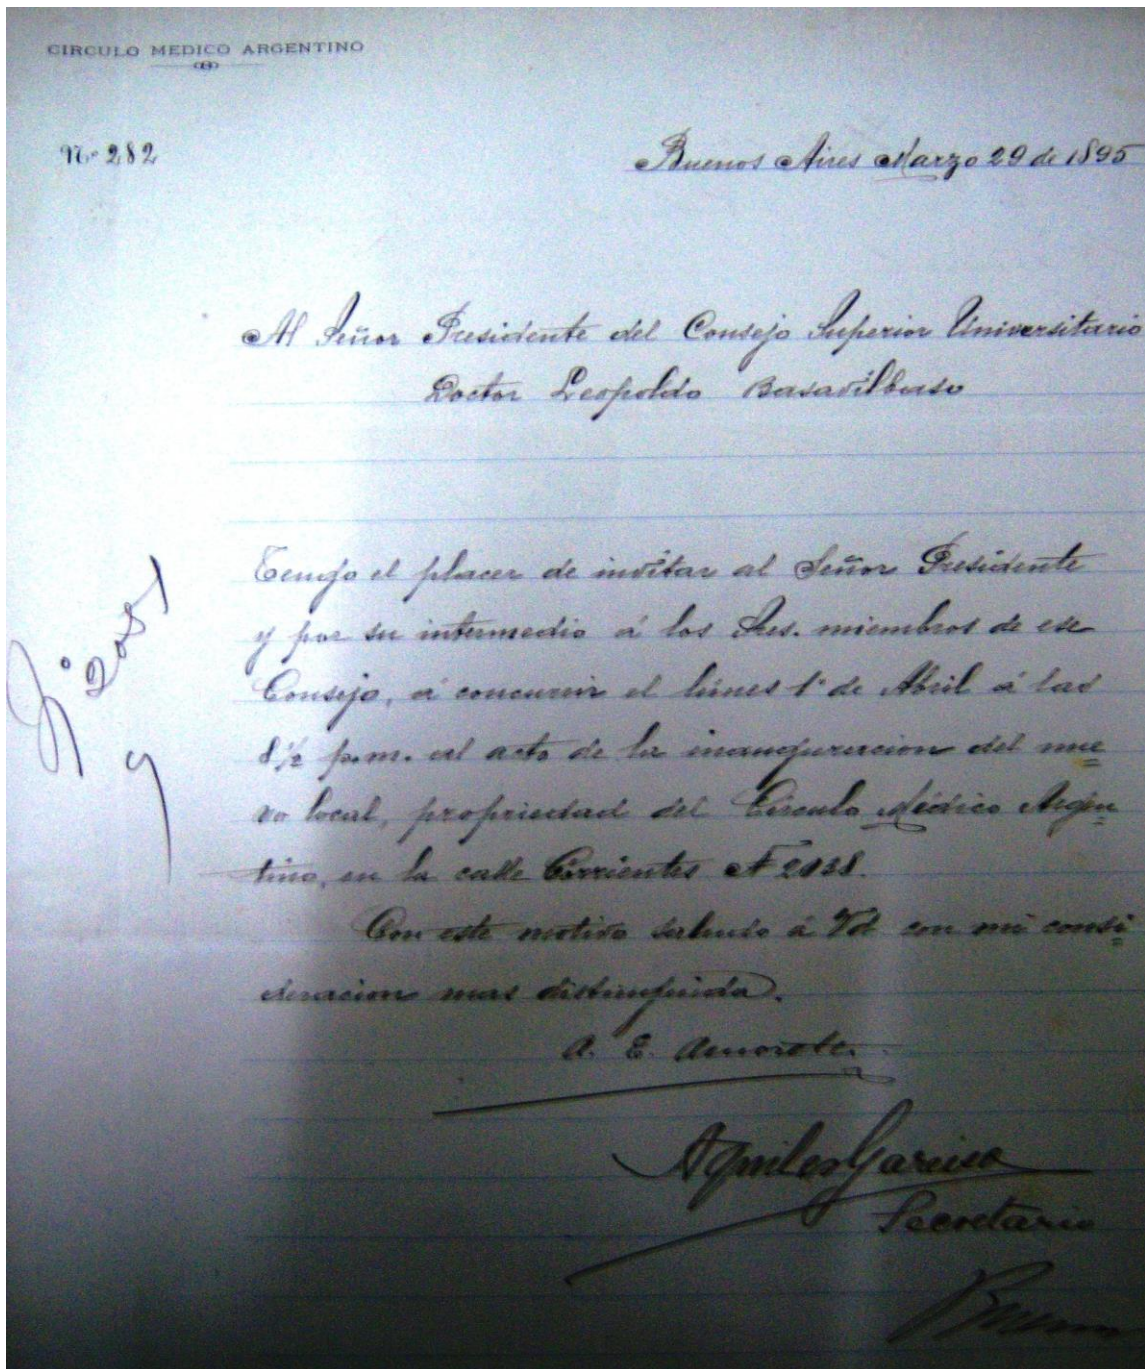 CIRCULO MEDICO ARGENTINO
Nº 282
Buenos Aires Marzo 29 de 1895
Al Señor Presidente del Consejo Superior Universitario
Doctor Leopoldo Basavilbaso
Tengo el placer de invitar al Señor Presidente
y por su intermedio á los Sres. miembros de ese
Consejo, á concurrir el lúnes 1º de Abril á las
8 ½ p.m. al acto de la inauguracion del nue=
vo local, propriedad del Círculo Médico Argen=
tino, en la calle Corrientes Nº 2038.
Con este motivo saludo á Vd con mi consi=
deracion mas distinguida.
A. E.
Aquiles
Secretario